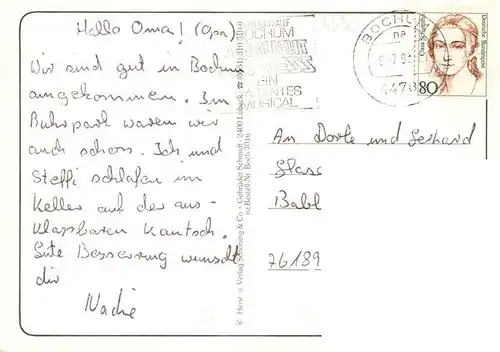 Hallo Oma! (Opa)
Wir sind gut in Bochum
angekommen. Im
Ruhrpark waren wir
auch schon. Ich und
Steffi schlafen im
Keller auf der aus-
klapbaren Kautsch.
Gute Besserung wünscht
dir
Nadie
BOCHUM
STARLIGHT
EXPRESS
EIN
MUSICAL
BOCHUM
na
4478
Deutsche Bundespost
80
An Dorle und Gerhard
Glasc
Babl
76189
© Herst. u. Verlag Schöning & Co + Gebrüder Schmidt · 2400 Lübeck
Bestell-Nr. Boch 7016